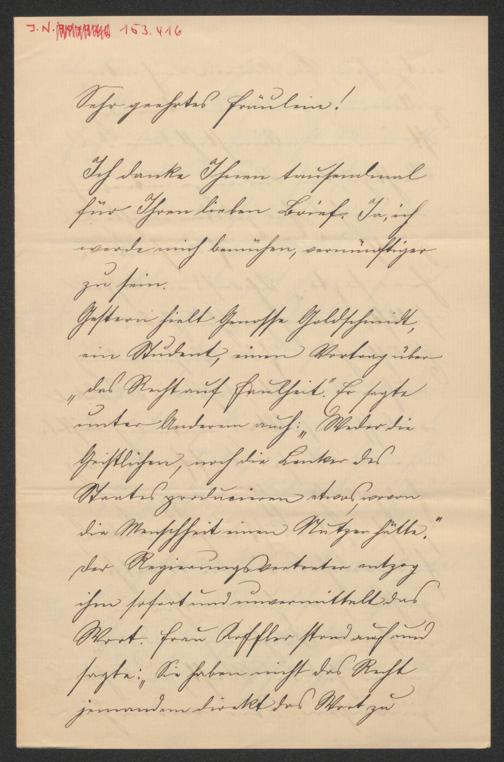 J.N. 153.416
Sehr geehrtes Fräulein!
Ich danke Ihnen tausendmal
für Ihren lieben Brief. Ja, ich
werde mich bemühen, vernünftiger
zu sein.
Gestern hielt Genosse Goldschmidt,
ein Student, einen Vortrag über
„das Recht auf Faulheit“. Er sagte
unter Anderem auch: „Weder die
Geistlichen, noch die Lenker des
Staates producieren etwas, wovon
die Menschheit einen Nutzen hätte.“
Der Regierungsvertreter entzog
ihm sofort und unvermittelt das
Wort. Frau Koffler stand auf und
sagte: „Sie haben nicht das Recht
jemandem direkt das Wort zu